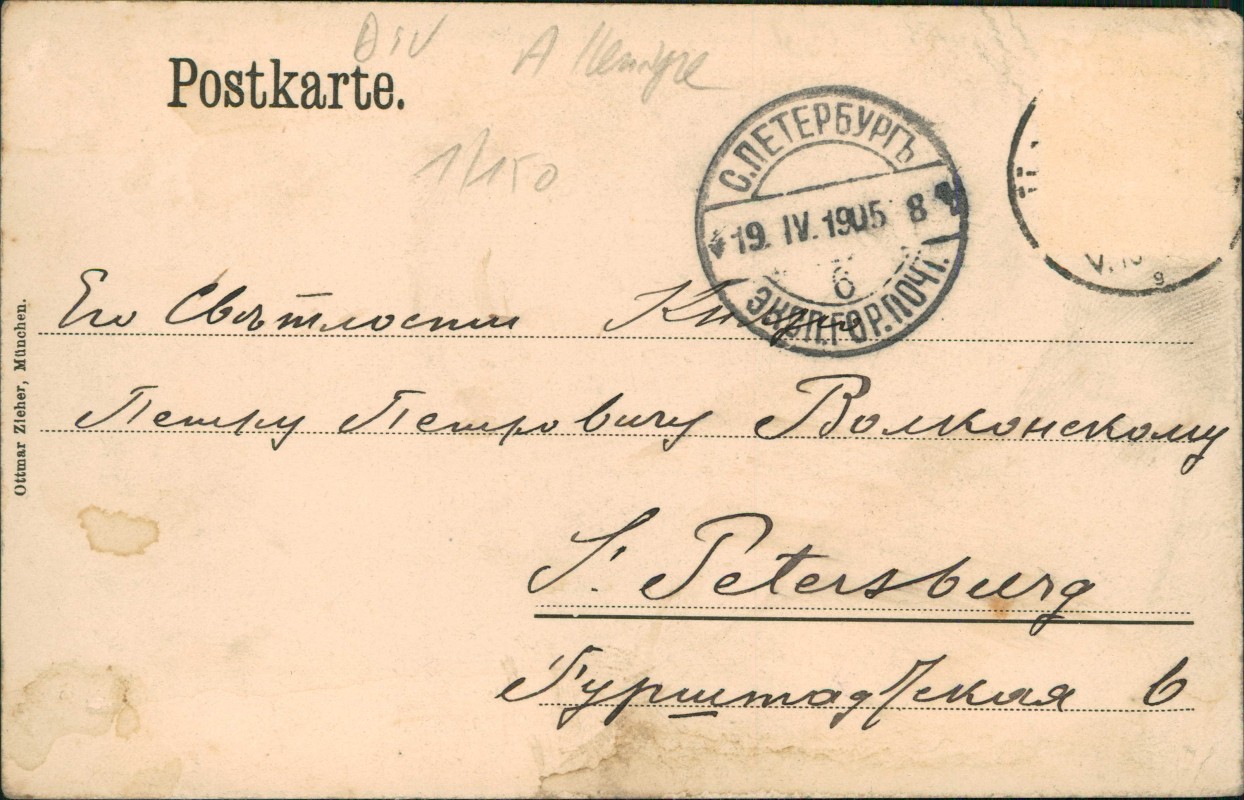 Postkarte.
1/150
С.ПЕТЕРБУРГЪ
19. IV. 1905 8
6
ЭКСП.ГОР.ПОЧТ.
Его Свѣтлости Князю
Петру Петровичу Волконскому
S. Petersburg
Гурштадская 6
Ottmar Zieher, München.